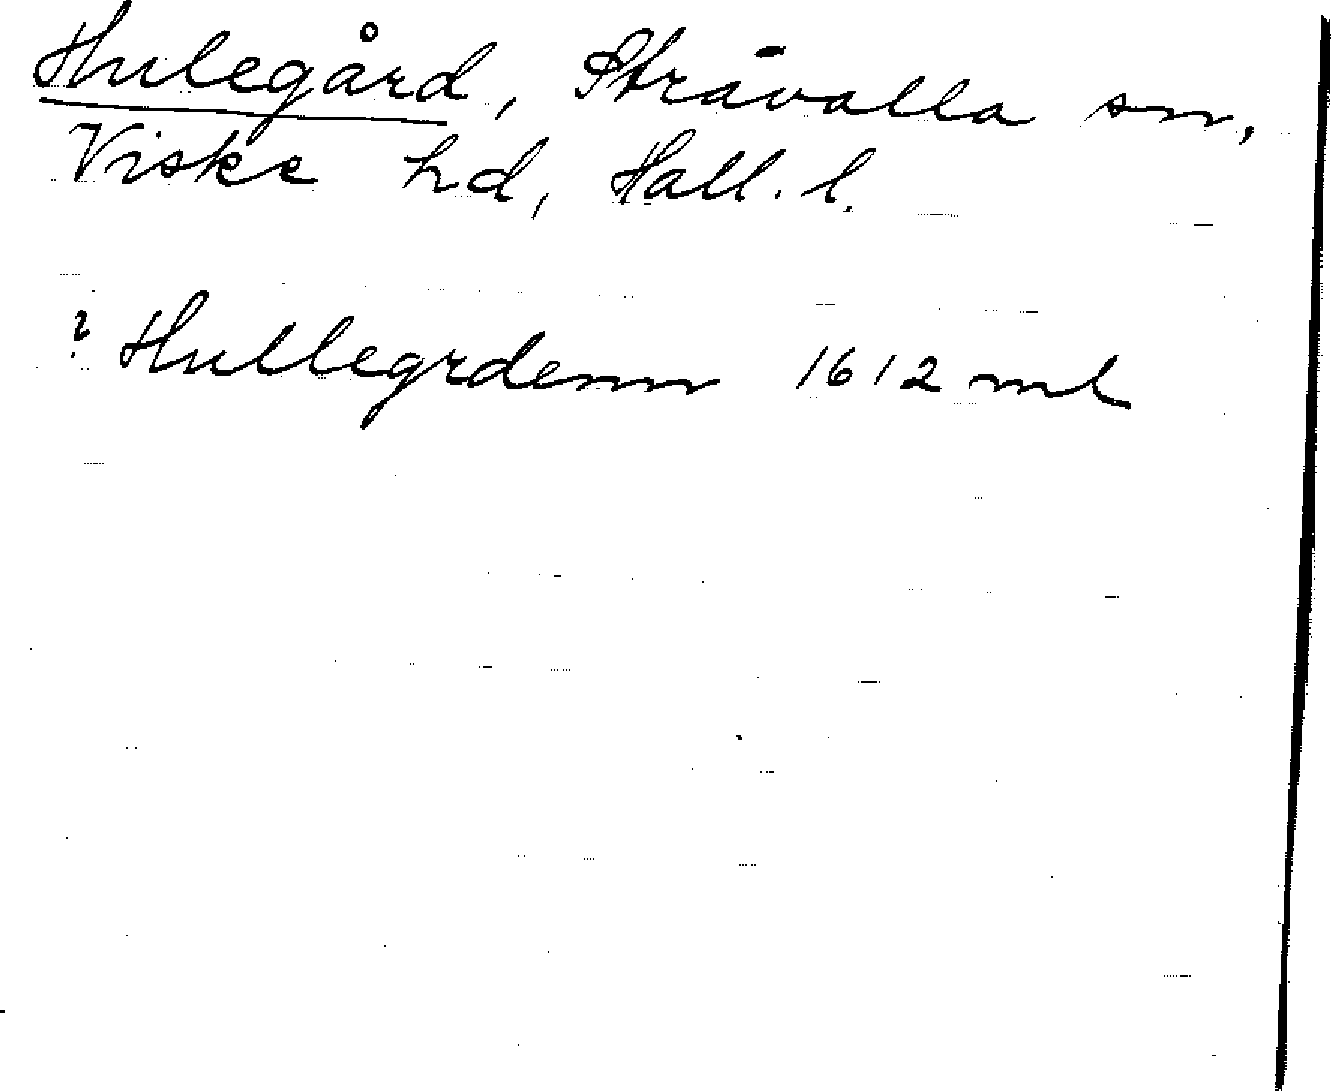 Hulegård, Stråvalla sn,
Viske hd, Hall. l.
? Hullegrdenn 1612 ml